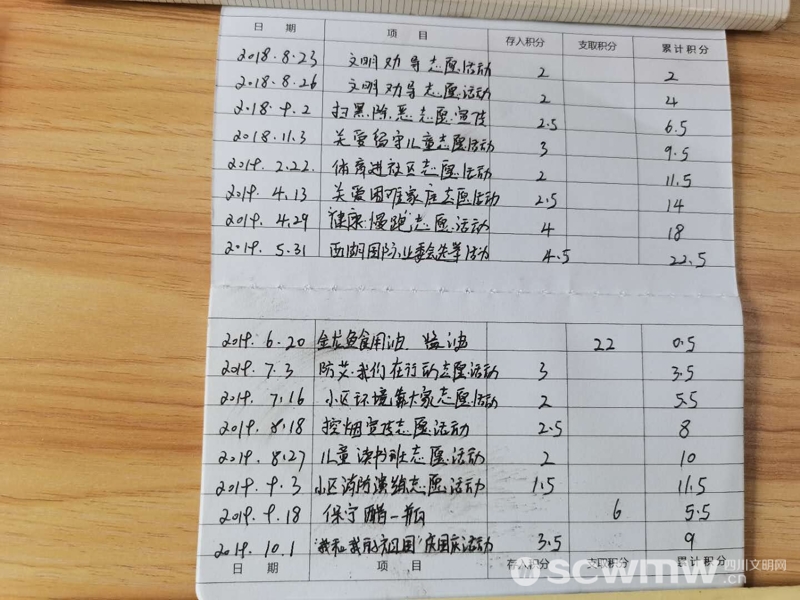 日 期 项 目 存入积分 支取积分 累计积分
2018.8.23 文明劝导志愿活动 2 2
2018.8.26 文明劝导志愿活动 2 4
2018.9.2 扫黑除恶志愿宣传 2.5 6.5
2018.11.3 关爱留守儿童志愿活动 3 9.5
2019.2.22. 体育进社区志愿活动 2 11.5
2019.4.13 关爱困难家庭志愿活动 2.5 14
2019.4.29 "健康慢跑"志愿活动 4 18
2019.5.31 西湖国际业委会选举活动 4.5 22.5
2019.6.20 金龙鱼食用油 酱油 22 0.5
2019.7.3 防艾·我们在行动志愿活动 3 3.5
2019.7.16 小区环境靠大家志愿活动 2 5.5
2019.8.18 控烟宣传志愿活动 2.5 8
2019.8.27 儿童读书班志愿活动 2 10
2019.9.3 小区消防演练志愿活动 1.5 11.5
2019.9.18 保宁醋一瓶 6 5.5
2019.10.1 "我和我的祖国"庆国庆活动 3.5 9
日 期 项 目 存入积分 支取积分 累计积分
scwmw 四川文明网
.cn